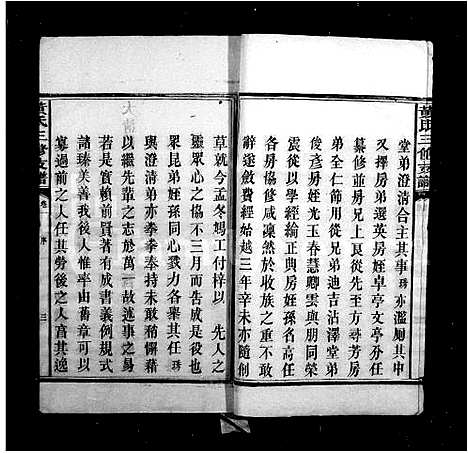 堂弟澄清合主其事 亦濫厠其中
又擇房弟選英房姪卓亭文亭分任
纂修房弟月兄上艮從先至方尋芳房
弟全仁飾用從兄弟迪吉沽澤堂弟
俊彥房姪光玉春慧卿雲與朋同榮
震從以學經綸正典房姪孫名高任
各房協修咸凜然於收族之重不敢
辭遂斂費經始越三年辛未亦隨創
草就今孟冬鳩工付梓以 先人之
靈眾心之協不三月而告成是役也
眾昆弟姪孫同心戮力各渠其任
與澄清弟亦拳拳奉持未敢稍懈藉
以繼先輩之志於萬一故述事之易
若是實賴前賢其有成書義例規式
諸臻美善我後人惟率由舊章可以
寡過前之人任其勞後之人宜其逸
董氏三修支譜
卷
序
三
董氏三修支譜